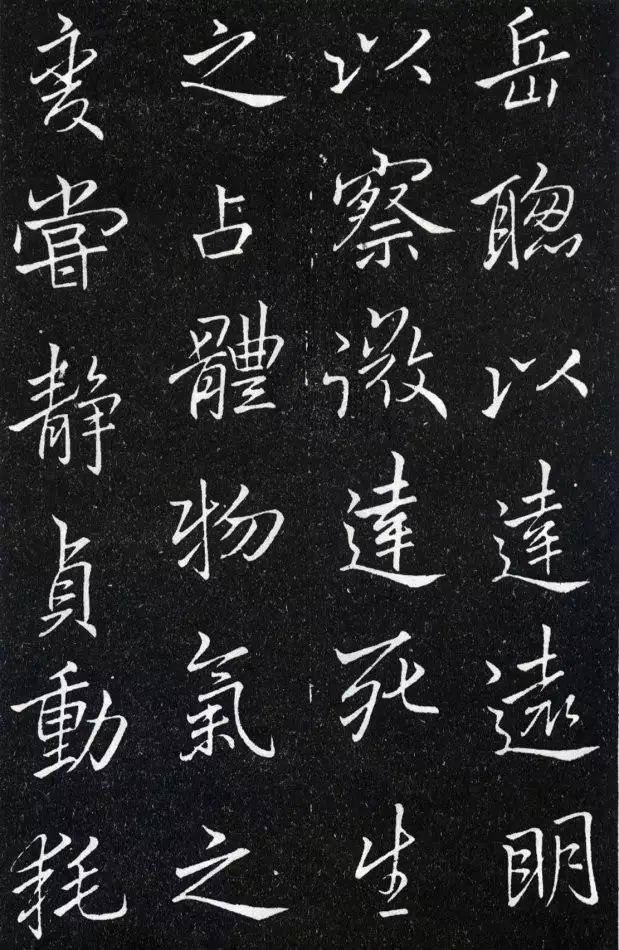 岳聦以達遠明
以察微達死生
之占體物氣之
变嘗靜貞動耗